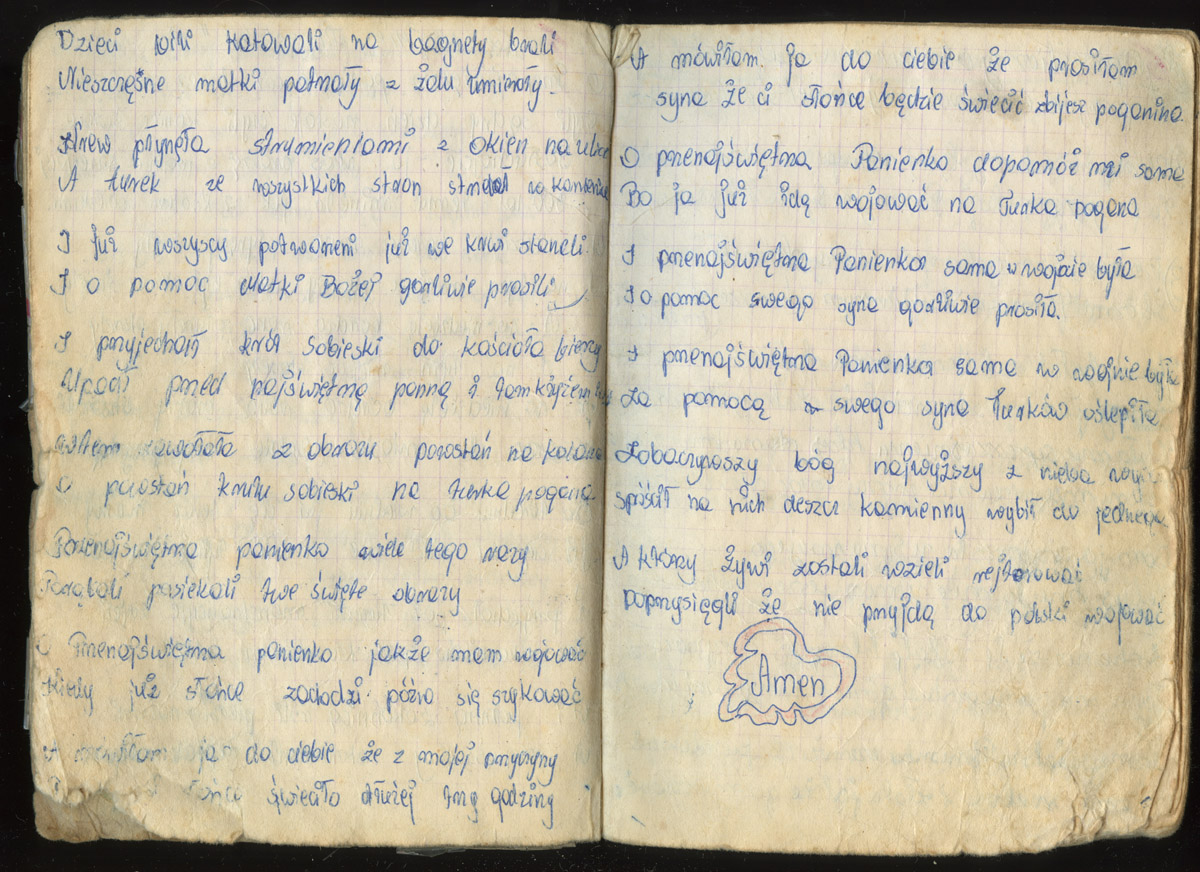 Dzieci bili katowali na bagnety brali
Nieszczęsne matki patrzały z żalu umierały.
Krew płynęła strumieniami z okien na ulice
A turek ze wszystkich stron strzelał w kamienice
I już wszyscy potrwożeni już we krwi staneli.
I o pomoc Matki Bożej gorliwie prosili
I przyjechał król Sobieski do kościoła bierzy
Upadł przed najświętrzą panną i tam krzyżem
zawołała z obrazu powstań na kolana
O powstań królu sobieski na turka pogana
Przenajświętrza panienko wiele tego razy
Porąbali posiekali twe święte obrazy
O Przenajświętrza panienko jakże mam wojować
Kiedy już słońce zachodzi późno się szykować
A mówiłam ja do ciebie że z mojej przyczyny
słońce świeciło dłużej trzy godziny
A mówiłam ja do ciebie że prosiłam
syna że ci słońce będzie świecić zbijesz poganina.
O przenajświętrza Panienko dopomóż mi sama
Bo ja już idę wojować na Turka pogana
I przenajświętrza Panienka sama w wojnie była
I o pomoc swego syna gorliwie prosiła.
I przenajświętrza Panienka sama w wojnie była
Za pomocą swego syna Turków oślepiła
Zobaczywszy bóg najwyższy z nieba
spóścił na nich deszcz kamienny wybił do jednego
A którzy żywi zostali wzieli rejterować
Poprzysięgli że nie przyjdą do polski wojować
Amen